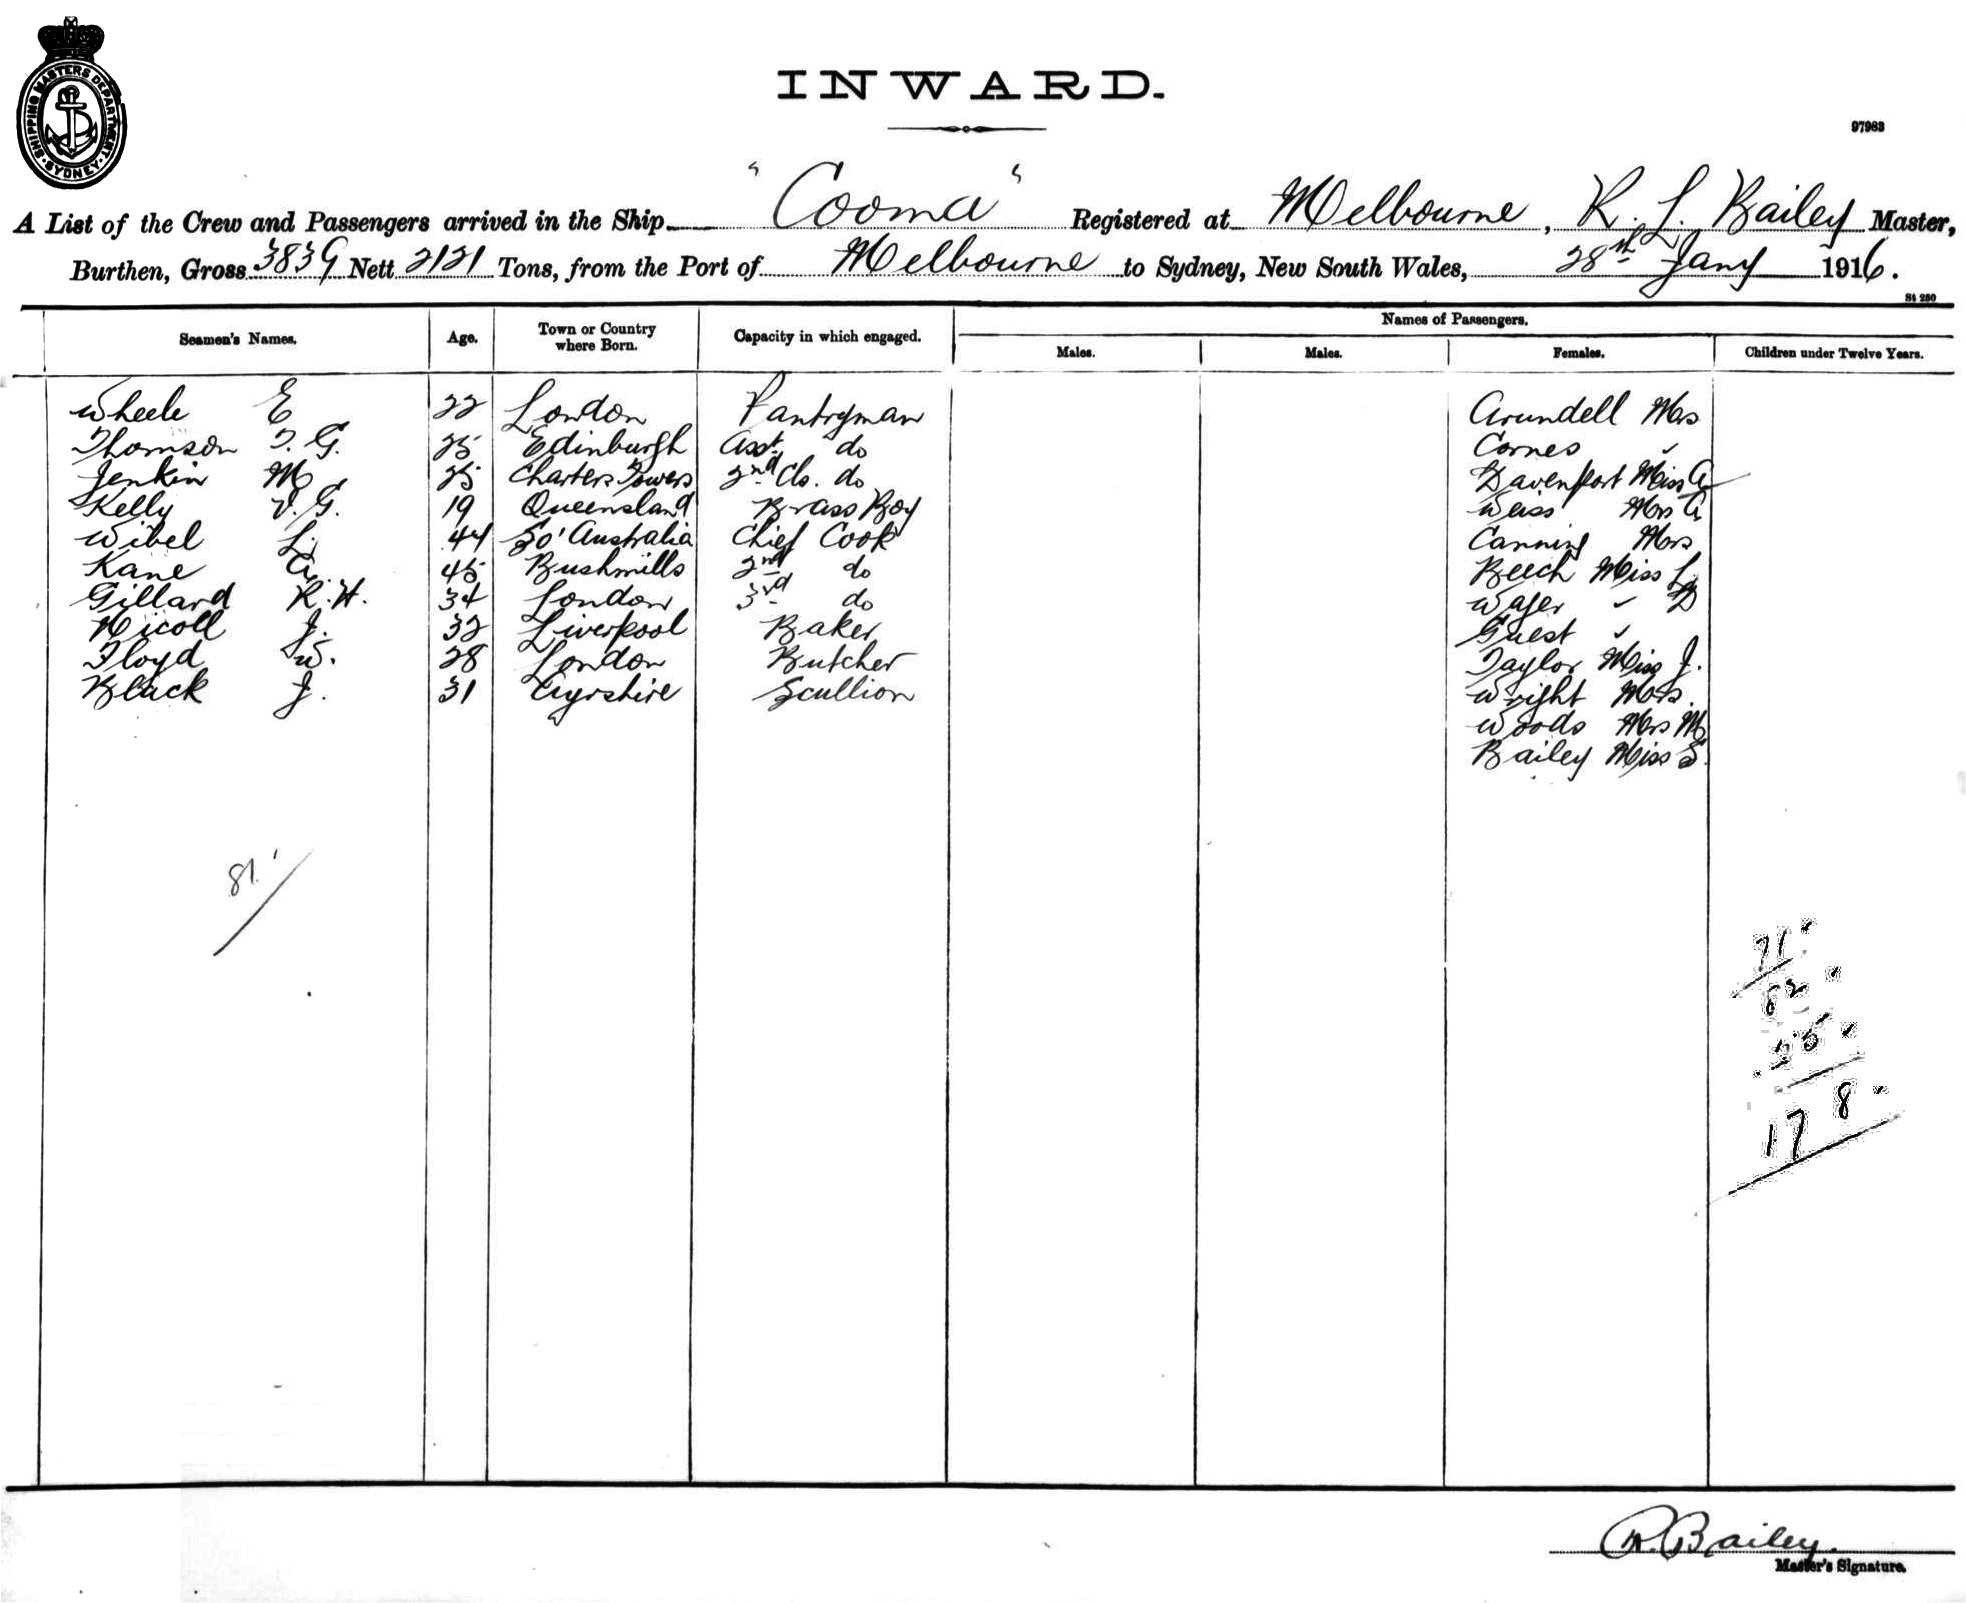 SHIPPING MASTERS DEPARTMENT · SYDNEY ·
INWARD.
97963
A List of the Crew and Passengers arrived in the Ship "Cooma" Registered at Melbourne, R. L. Bailey Master,
Burthen, Gross 3839 Nett 2121 Tons, from the Port of Melbourne to Sydney, New South Wales, 28th Jany 1916.
St 250
Names of Passengers.
Seamen's Names. Age. Town or Country where Born. Capacity in which engaged. Males. Males. Females. Children under Twelve Years.
Wheele E 22 London Pantryman Arundell Mrs
Thomson T. G. 25 Edinburgh Asst do Cornes "
Jenkin M 25 Charters Towers 2nd Cls. do Davenport Miss A
Kelly V. G. 19 Queensland Brass Boy Weiss Mrs A
Wibel L 44 So' Australia Chief Cook Canning Mrs
Kane A. 45 Bushmills 2nd do Beech Miss L
Gillard R. H. 34 London 3rd do Wager " D
Nicoll J. 32 Liverpool Baker Guest "
Floyd W. 28 London Butcher Taylor Miss J.
Black J. 31 Ayrshire Scullion Wright Mrs.
Woods Mrs M
Bailey Miss S.
81
71
82
25
178
R. Bailey.
Master's Signature.